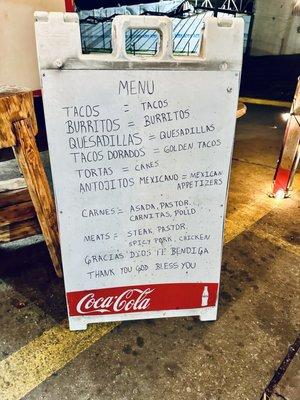 MENU
TACOS = TACOS
BURRITOS = BURRITOS
QUESADILLAS = QUESADILLAS
TACOS DORADOS = GOLDEN TACOS
TORTAS = CAKES
ANTOJITOS MEXICANO = MEXICAN
APPETIZERS
CARNES = ASADA, PASTOR,
CARNITAS, POLLO
MEATS = STEAK, PASTOR,
SPICY PORK, CHICKEN
GRACIAS DIOS TE BENDIGA
THANK YOU GOD BLESS YOU
Coca-Cola